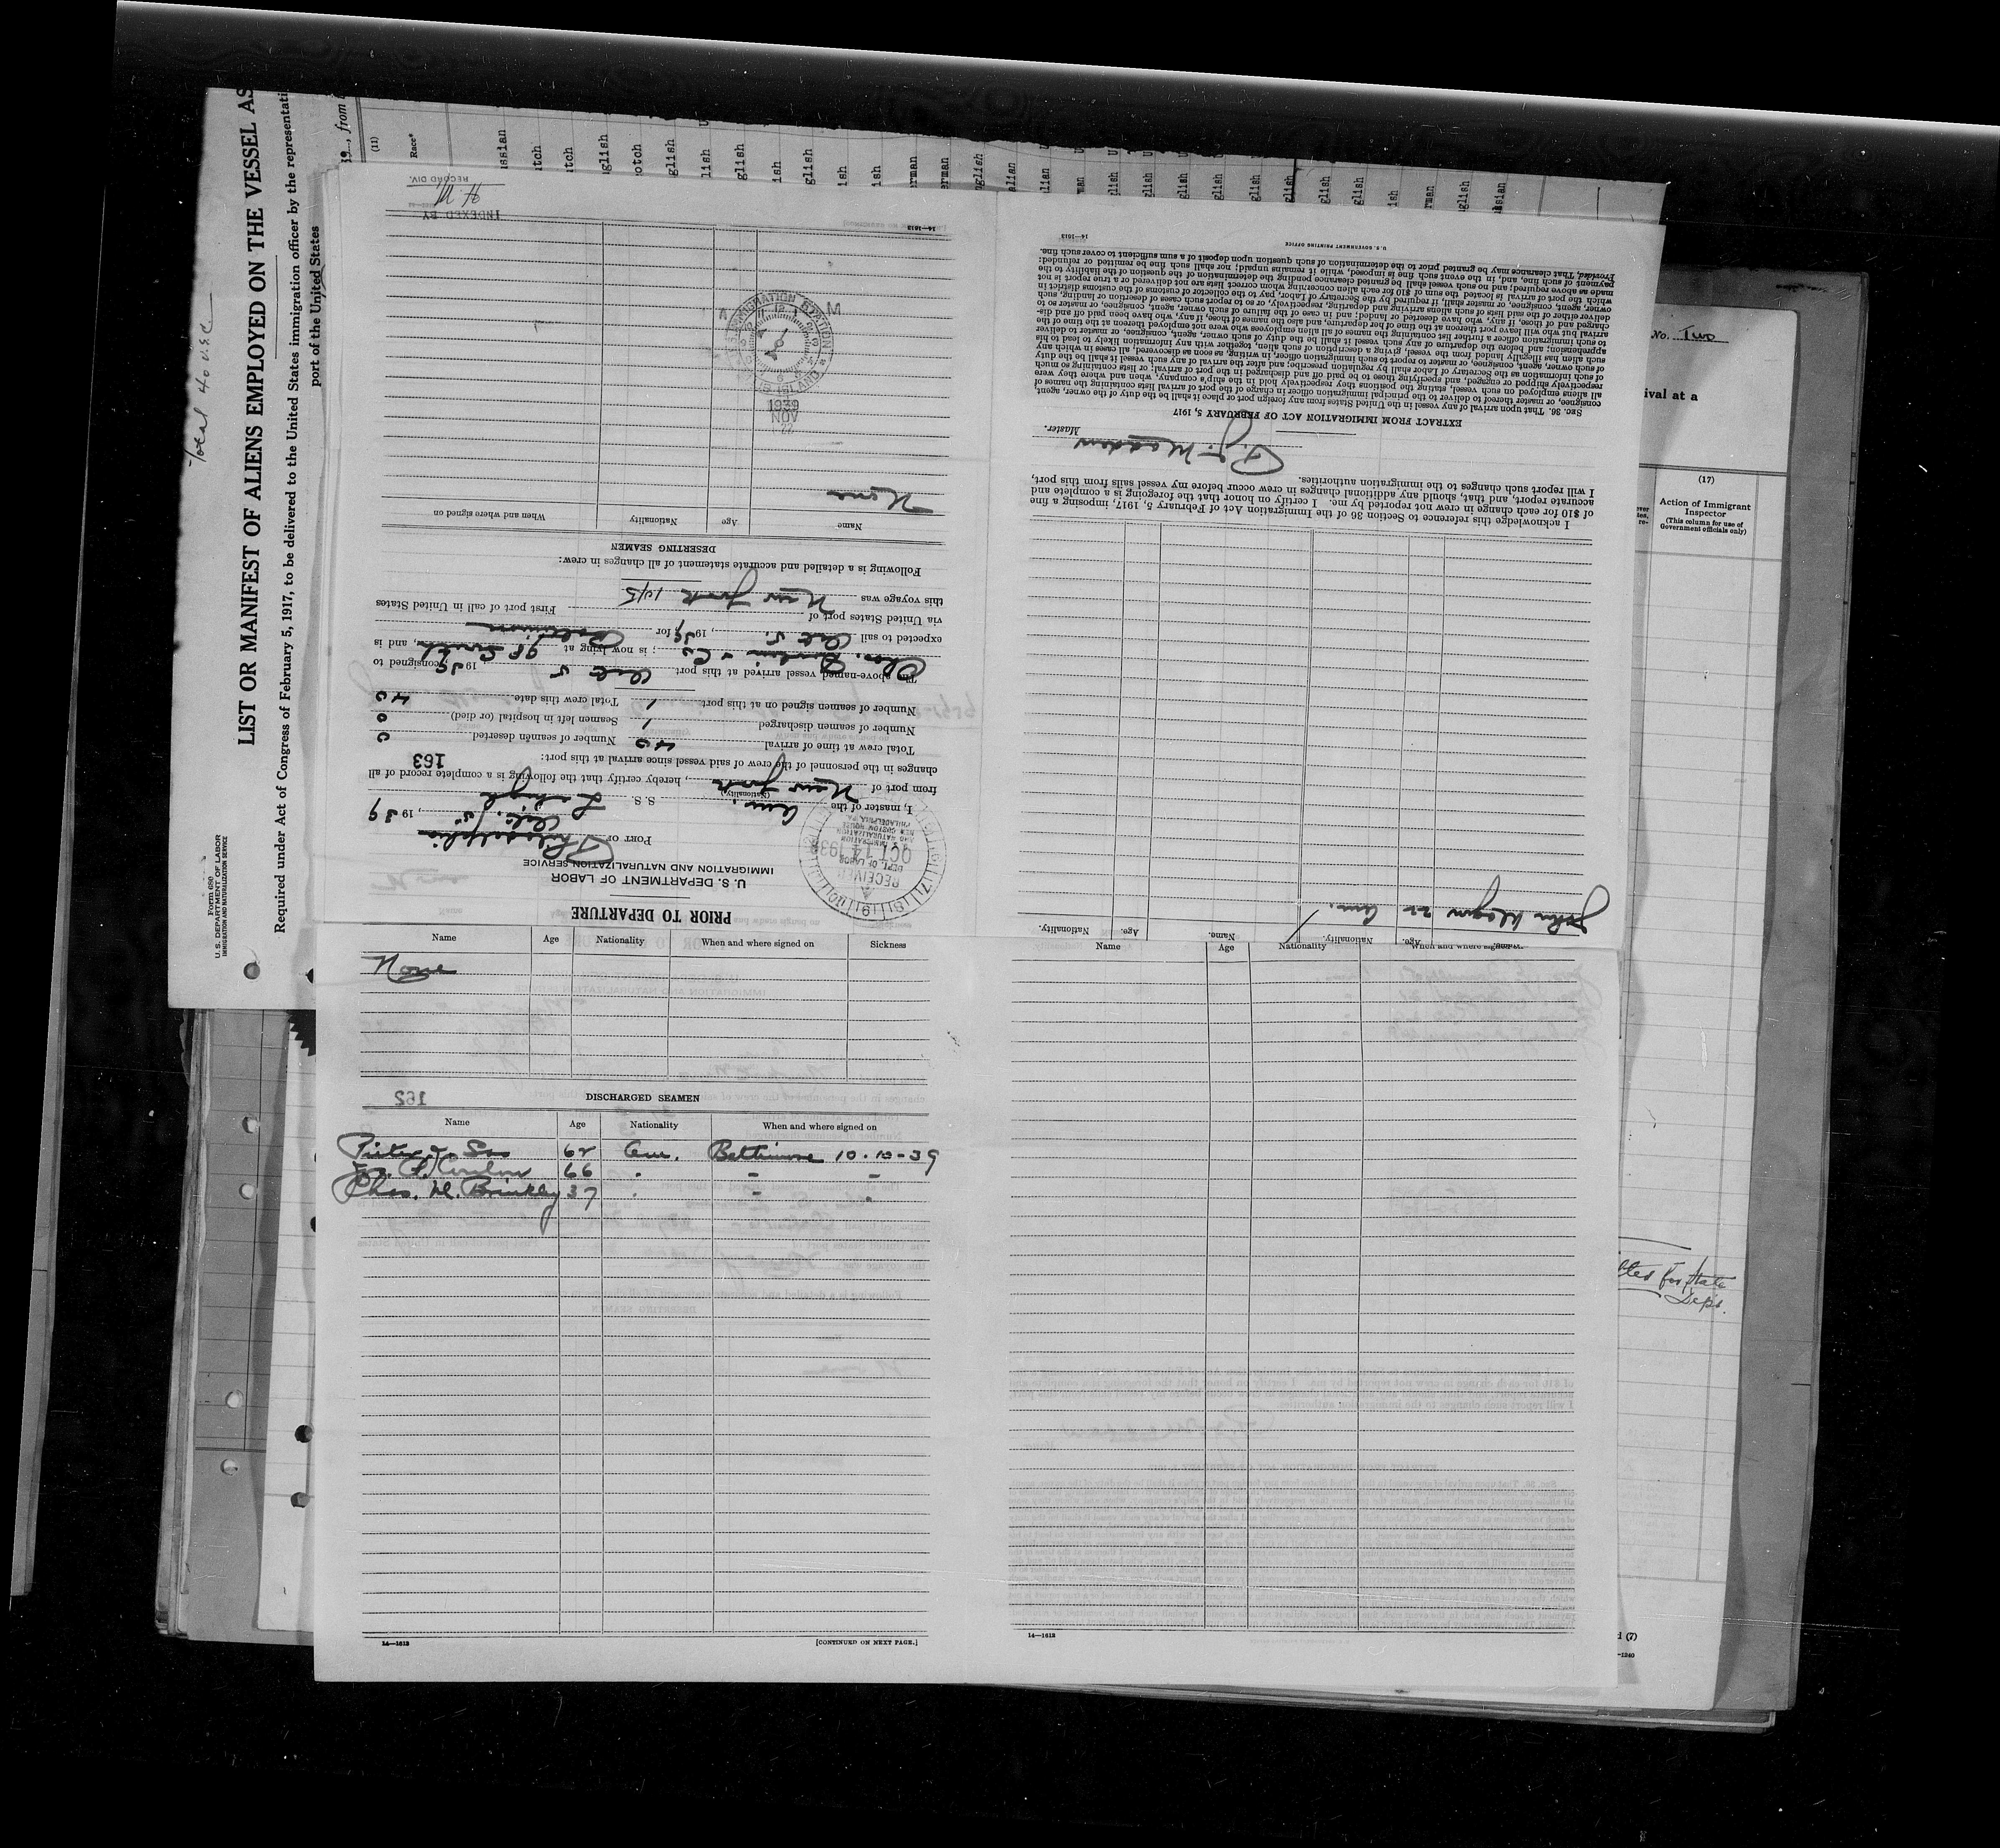 Total 40 U.S.C.
LIST OR MANIFEST OF ALIENS EMPLOYED ON THE VESSEL AS
Required under Act of Congress of February 5, 1917, to be delivered to the United States immigration officer by the representati
port of the United States
Form 680
U. S. DEPARTMENT OF LABOR
IMMIGRATION AND NATURALIZATION SERVICE
, from
(11)
Race*
No. Two
ival at a
(17)
Action of Immigrant
Inspector
(This column for use of
Government officials only)
for State
Dept.
PRIOR TO DEPARTURE
U. S. DEPARTMENT OF LABOR
IMMIGRATION AND NATURALIZATION SERVICE
PORT OF Philadelphia
Oct. 5, 1939
I, master of the Am. S. S. Lehigh
(Nationality)
from port of New York, hereby certify that the following is a complete record of all
changes in the personnel of the crew of said vessel since arrival at this port:
163
Total crew at time of arrival 40 Number of seamen deserted 0
Number of seamen discharged 1 Seamen left in hospital (or died) 0
Number of seamen signed on at this port 1 Total crew this date 40
The above-named vessel arrived at this port Oct 5 1939, consigned to
Chas. & Co; is now lying at 98 South, and is
expected to sail Oct 5, 1939, for Baltimore
via United States port of First port of call in United States
this voyage was New York 10/5
Following is a detailed and accurate statement of all changes in crew:
DESERTING SEAMEN
Name Age Nationality When and where signed on
None
IMMIGRATION
ELLIS ISLAND
A M
1939
NOV
22
RECEIVED
DEPT. OF LABOR
OCT 14 1939
IMMIGRATION
AND NATURALIZATION
NEW CUSTOM HOUSE
PHILADELPHIA, PA.
14—1613
INDEXED BY
M H
RECORD DIV.
Name. Age. Nationality. Name. Age. Nationality.
John Wagner 22 Am.
I acknowledge this reference to Section 36 of the Immigration Act of February 5, 1917, imposing a fine
of $10 for each change in crew not reported by me. I certify on honor that the foregoing is a complete and
accurate report, and that, should any additional changes in crew occur before my vessel sails from this port,
I will report such changes to the immigration authorities.
P. J. Madden
Master.
EXTRACT FROM IMMIGRATION ACT OF FEBRUARY 5, 1917
SEC. 36. That upon arrival of any vessel in the United States from any foreign port or place it shall be the duty of the owner, agent,
consignee, or master thereof to deliver to the principal immigration officer in charge of the port of arrival lists containing the names of
all aliens employed on such vessel, stating the positions they respectively hold in the ship's company, when and where they were
respectively shipped or engaged, and specifying those to be paid off and discharged in the port of arrival; or lists containing so much
of such information as the Secretary of Labor shall by regulation prescribe; and after the arrival of any such vessel it shall be the duty
of such owner, agent, consignee, or master to report to such immigration officer, in writing, as soon as discovered, all cases in which any
such alien has illegally landed from the vessel, giving a description of such alien, together with any information likely to lead to his
apprehension; and before the departure of any such vessel it shall be the duty of such owner, agent, consignee, or master to deliver
to such immigration officer a further list containing the names of all alien employees who were not employed thereon at the time of the
arrival but who will leave port thereon at the time of her departure, and also the names of those, if any, who have been paid off and dis-
charged and of those, if any, who have deserted or landed; and in case of the failure of such owner, agent, consignee, or master so to
deliver either of the said lists of such aliens arriving and departing, respectively, or so to report such cases of desertion or landing, such
owner, agent, consignee, or master, shall, if required by the Secretary of Labor, pay to the collector of customs of the customs district in
which the port of arrival is located the sum of $10 for each alien concerning whom correct lists are not delivered or a true report is not
made as above required; and no such vessel shall be granted clearance pending the determination of the question of the liability to the
payment of such fine, and, in the event such fine is imposed, while it remains unpaid; nor shall such fine be remitted or refunded:
Provided, That clearance may be granted prior to the determination of such question upon deposit of a sum sufficient to cover such fine.
U. S. GOVERNMENT PRINTING OFFICE 14—1613
Name Age Nationality When and where signed on Sickness
None
162
DISCHARGED SEAMEN
Name Age Nationality When and where signed on
62 Am. Baltimore 10-10-39
66 " " "
Chas. W. Brinkley 37 " " "
14—1613
[CONTINUED ON NEXT PAGE.]
Name Age Nationality When and where signed on
14—1613
(7)
-1240